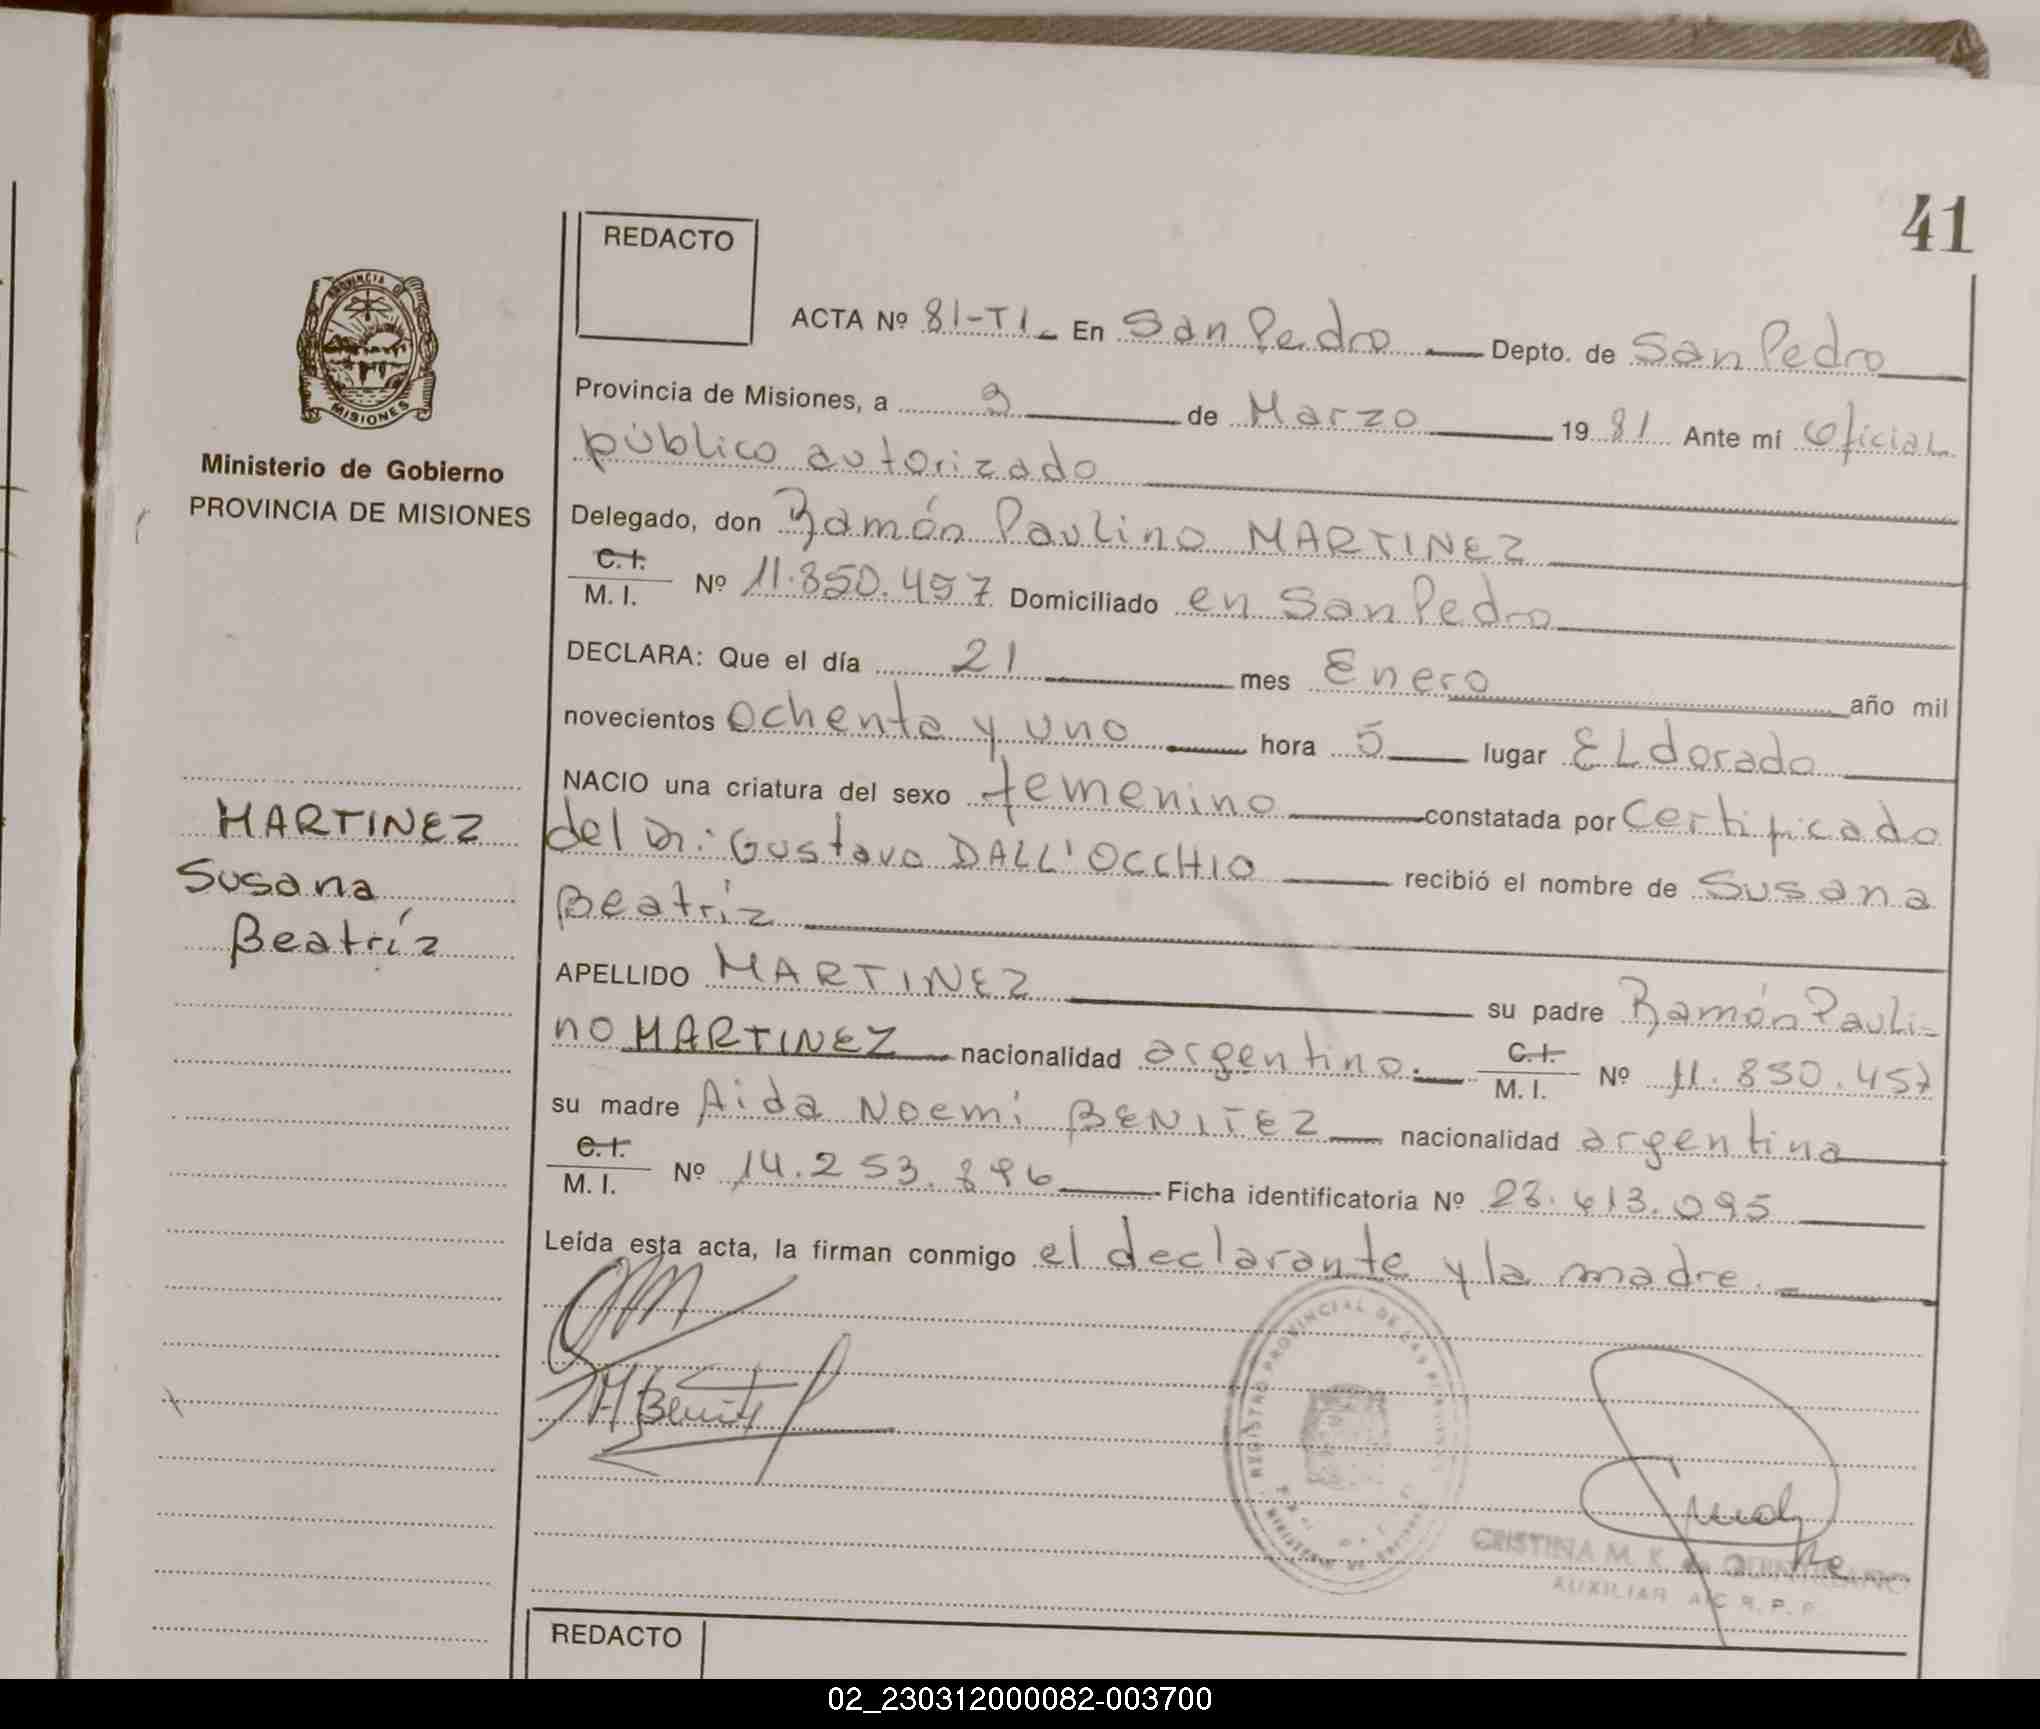 41
REDACTO
PROVINCIA DE
MISIONES
Ministerio de Gobierno
PROVINCIA DE MISIONES
ACTA Nº 81-T1- En San Pedro Depto. de San Pedro
Provincia de Misiones, a 3 de Marzo 1981 Ante mí Oficial
público autorizado
Delegado, don Ramón Paulino MARTINEZ
C.I.
M. I. Nº 11.850.457 Domiciliado en San Pedro
DECLARA: Que el día 21 mes Enero año mil
novecientos ochenta y uno hora 5 lugar ELdorado
NACIO una criatura del sexo femenino constatada por Certificado
del Dr: Gustavo DALL'OCCHIO recibió el nombre de Susana
Beatriz
MARTINEZ
Susana
Beatríz
APELLIDO MARTINEZ su padre Ramón Pauli-
no MARTINEZ nacionalidad argentino. C.I.
M. I. Nº 11.850.457
su madre Aida Noemi BENITEZ nacionalidad argentina
C.I.
M. I. Nº 14.253.896 Ficha identificatoria Nº 28.413.095
Leída esta acta, la firman conmigo el declarante y la madre.
REGISTRO PROVINCIAL DE LAS PERSONAS
CRISTINA M. K. de QUINTELANO
AUXILIAR A/C R. P. P.
REDACTO
02_230312000082-003700